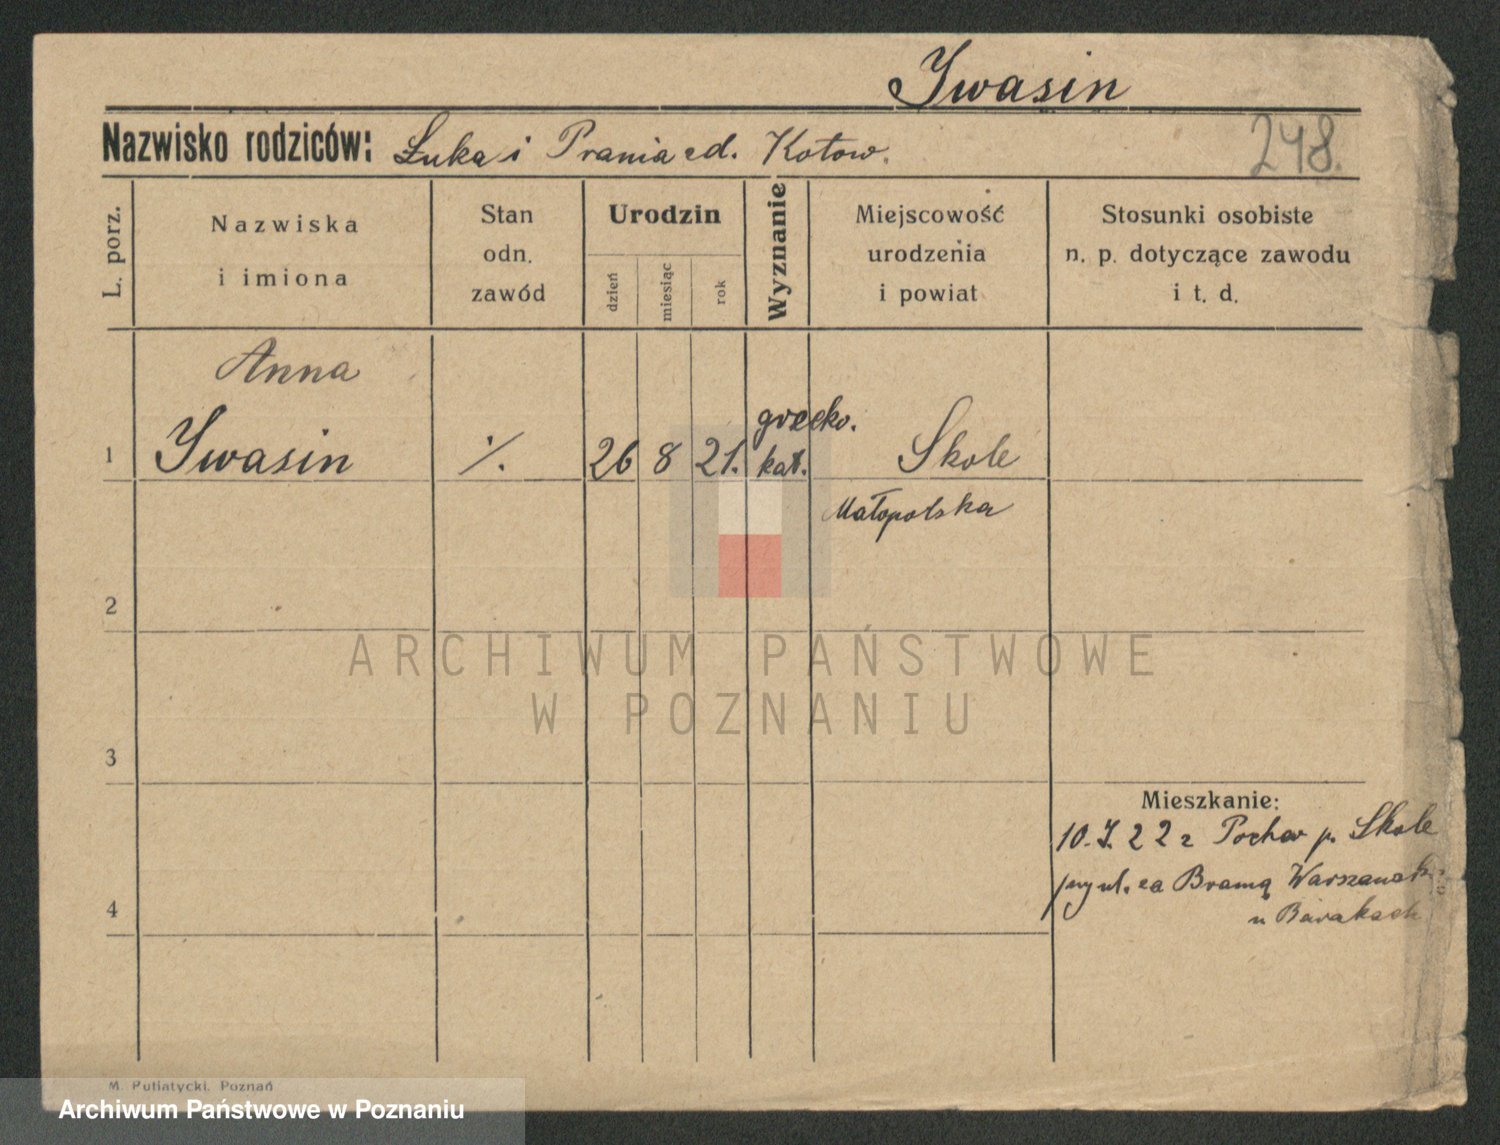 Iwasin
Nazwisko rodziców: Łuka i Prania zd. Kotow.
248.
L. porz.
Nazwiska
i imiona
Stan
odn.
zawód
Urodzin
dzień
miesiąc
rok
Wyznanie
Miejscowość
urodzenia
i powiat
Stosunki osobiste
n. p. dotyczące zawodu
i t. d.
Anna
1 Iwasin ./. 26 8 21. grecko. kat. Skole
Małopolska
2
3
4
Mieszkanie:
10.I.22 z p. Skole
za Bramą
Barakach
M. Putiatycki, Poznań
ARCHIWUM PAŃSTWOWE
W POZNANIU
Archiwum Państwowe w Poznaniu